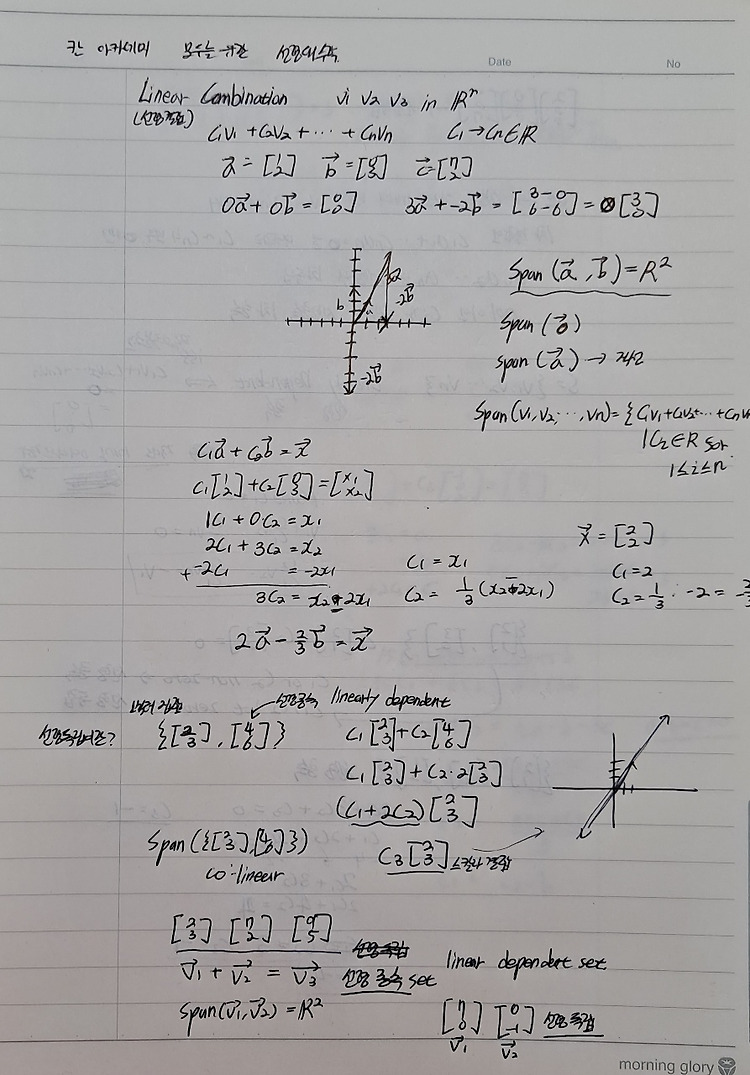 칸 아카데미 모두를 위한 선형대수학
Date No
Linear Combination v1 v2 v3 in ℝⁿ
(선형결합)
C₁V₁ + C₂V₂ + ⋯ + CnVn C₁ → Cn ∈ ℝ
a⃗ = [1 2] b⃗ = [0 3] c⃗ = [7 2]
0a⃗ + 0b⃗ = [0 0] 3a⃗ + -2b⃗ = [3-0 6-6] = [3 0]
Span (a⃗, b⃗) = R²
b a 3a -2b⃗
-2b⃗
Span (0⃗)
span (a⃗) →
Span(V₁, V₂, ⋯, Vn) = {C₁V₁ + C₂V₂ + ⋯ + CnV
| C₂ ∈ R for
1 ≤ i ≤ n
C₁a⃗ + C₂b⃗ = x⃗
C₁[1 2] + C₂[0 3] = [x₁ x₂]
1C₁ + 0C₂ = x₁
2C₁ + 3C₂ = x₂
+ -2C₁ = -2x₁
3C₂ = x₂ - 2x₁
C₁ = x₁
C₂ = 1/3 (x₂ - 2x₁)
x⃗ = [2 2]
C₁ = 2
C₂ = 1/3 · -2 = -2/3
2a⃗ - 2/3 b⃗ = x⃗
벡터 집합 선형종속 linearly dependent
선형독립여존?
{[2 3], [4 6]} C₁[2 3] + C₂[4 6]
C₁[2 3] + C₂·2[2 3]
(C₁ + 2C₂)[2 3]
Span({[2 3], [4 6]}) C₃[2 3] 스칼라 결합
co-linear
[2 3] [7 2] [9 5] 선형독립
V⃗₁ + V⃗₂ = V⃗₃ 선형 종속 set linear dependent set
Span(V⃗₁, V⃗₂) = ℝ²
[7 0] [0 -1] 선형독립
V⃗₁ V⃗₂
morning glory